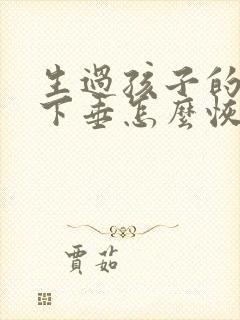 生過孩子的
下垂怎麼恢
賈茹